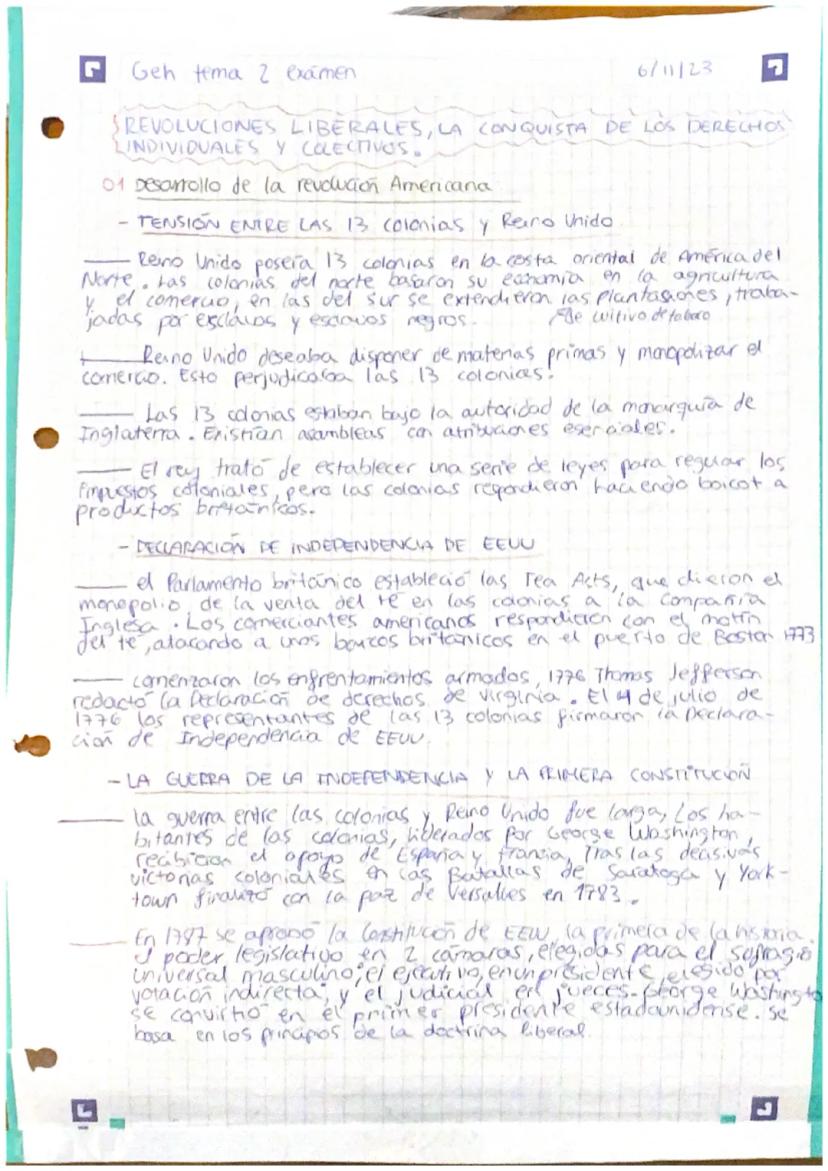 Geh tema 2 exámen
6/11/23
REVOLUCIONES LIBERALES, LA CONQUISTA DE LOS DERECHOS
INDIVIDUALES Y COLECTIVOS.
01 Desarrollo de la revolución Americana
- TENSIÓN ENTRE LAS 13 colonias y Reino Unido
Reino Unido poseía 13 colonias en la costa oriental de América del
Norte. Las colonias del norte basaron su economía en la agricultura
y el comercio, en las del sur se extendieron las plantaciones, traba-
jadas por esclavos y esclavos negros. de cultivo de tabaco
Reino Unido deseaba disponer de materias primas y monopolizar el
comercio. Esto perjudicaba las 13 colonias.
Las 13 colonias estaban bajo la autoridad de la monarquía de
Inglaterra. Existían asambleas con atribuciones esenciales.
El rey trató de establecer una serie de leyes para regular los
impuestos coloniales, pero las colonias respondieron haciendo boicot a
productos británicos.
- DECLARACIÓN DE INDEPENDENCIA DE EEUU
el Parlamento británico estableció las Tea Acts, que dieron el
monopolio de la venta del té en las colonias a la Compañía
Inglesa. Los comerciantes americanos respondieron con el motín
del té, atacando a unos barcos británicos en el puerto de Boston 1773
comenzaron los enfrentamientos armados, 1776 Thomas Jefferson
redactó la Declaración de derechos de Virginia. El 4 de julio de
1776 los representantes de las 13 colonias firmaron la Declara-
ción de Independencia de EEUU.
- LA GUERRA DE LA INDEPENDENCIA Y LA PRIMERA CONSTITUCIÓN
la guerra entre las colonias y Reino Unido fue larga, Los ha-
bitantes de las colonias, liderados por George Washington,
recibieron el apoyo de España y Francia, Tras las decisivas
victorias coloniales en las Batallas de Saratoga y York-
town finalizó con la paz de Versalles en 1783.
En 1787 se aprobó la Constitución de EEUU, la primera de la historia.
poder legislativo en 2 cámaras, elegidas para el sufragio
universal masculino; el ejecutivo, en un presidente elegido por
votación indirecta; y el judicial en jueces. George Washingto
se convirtió en el primer presidente estadounidense. se
basa en los principios de la doctrina liberal.